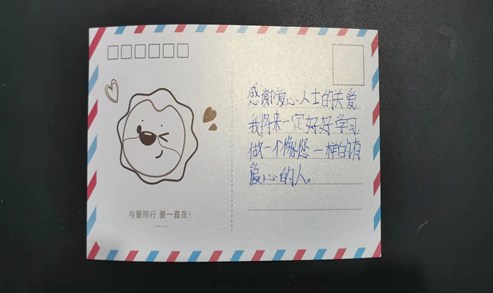 与爱同行 爱一直在!
感谢爱心人士的关爱,
我将来一定好好学习
做一个像您一样的有
爱心的人。